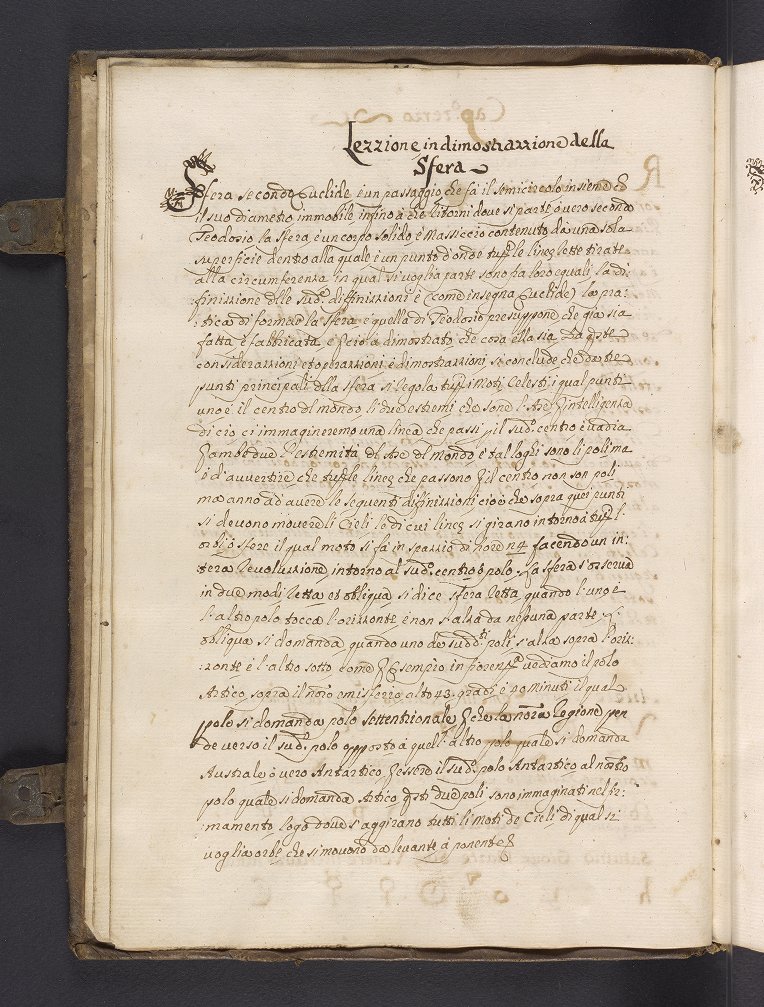 Lezzione in dimostrazzione della
Sfera
Sfera secondo Euclide è un passaggio che fà il semicircolo insieme cō
il suo diametro immobile infino à che ritorni dove si partè, ò vero secondo
Teodosio la sfera, è un corpo solido è Massiccio contenuto da una sola
superficie dentro alla quale è un punto d'onde tutte le linee rette tirate
alla circumferenza in qual si voglia parte sono fra loro equali, la di=
:finizzione delle sudᵉ. diffinizzioni è (come insegna Euclide) la pra=
:tica di formar la sfera è quella di Teodosio presuppone che già sia
fatta è fabbricata, è perciò à dimostrato che cosa ella sia. Da q̄ste
considerazzioni, et operazzioni, è dimostrazzioni, se conclude che da tre
punti principali dlla sfera si regola tutti i Moti Celesti, i qual punti
uno è il centro dl mondo, li due estremi che sono l'Are p intelligenza
di ciò ci immagineremo una linea che passi p il sudᵒ. centro è vadia
p ambe due l'estremità dl Are dl mondo, è tal loghi sono li poli ma
è d'avvertire che tutte le linee che passono p il centro non son poli
ma anno ad avere le sequenti diffinizzioni cioè che sopra quei punti
si devono movere li Cieli le di cui linee si girano intorno à tutti l'
orbi, ò sfere il qual moto si fà in spazzio di hore 24 facendo un in:
:tera Revoluzzione intorno al sudᵒ. centro ò polo. La sfera s'osserva
in due modi Retta et obliqua si dice sfera Retta quando l'uno è
l'altro polo tocca l'orizzonte è non s'alza da nessuna parte,
obliqua si domanda quando uno de suddᵗⁱ poli s'alza sopra l'oriz:
:zonte è l'altro sotto, come p Esempio in Forenze vediamo il polo
Artico, sopra il nrō emisferio alto 43. gradi è 40 minuti il qual
polo si domanda polo settentrionale p che la nrā Regione pen
de verso il sudᵒ. polo opposto à quell'altro polo quale si domanda
Australe ò vero Antartico p essere il sudᵒ. polo Antartico al nostro
polo quale si domanda Artico q̄sti due poli sono immaginati nel fir:
:mamento, logo dove s'aggirano tutti li moti de Cieli di qual si
voglia orbe che si movono da levante à ponente